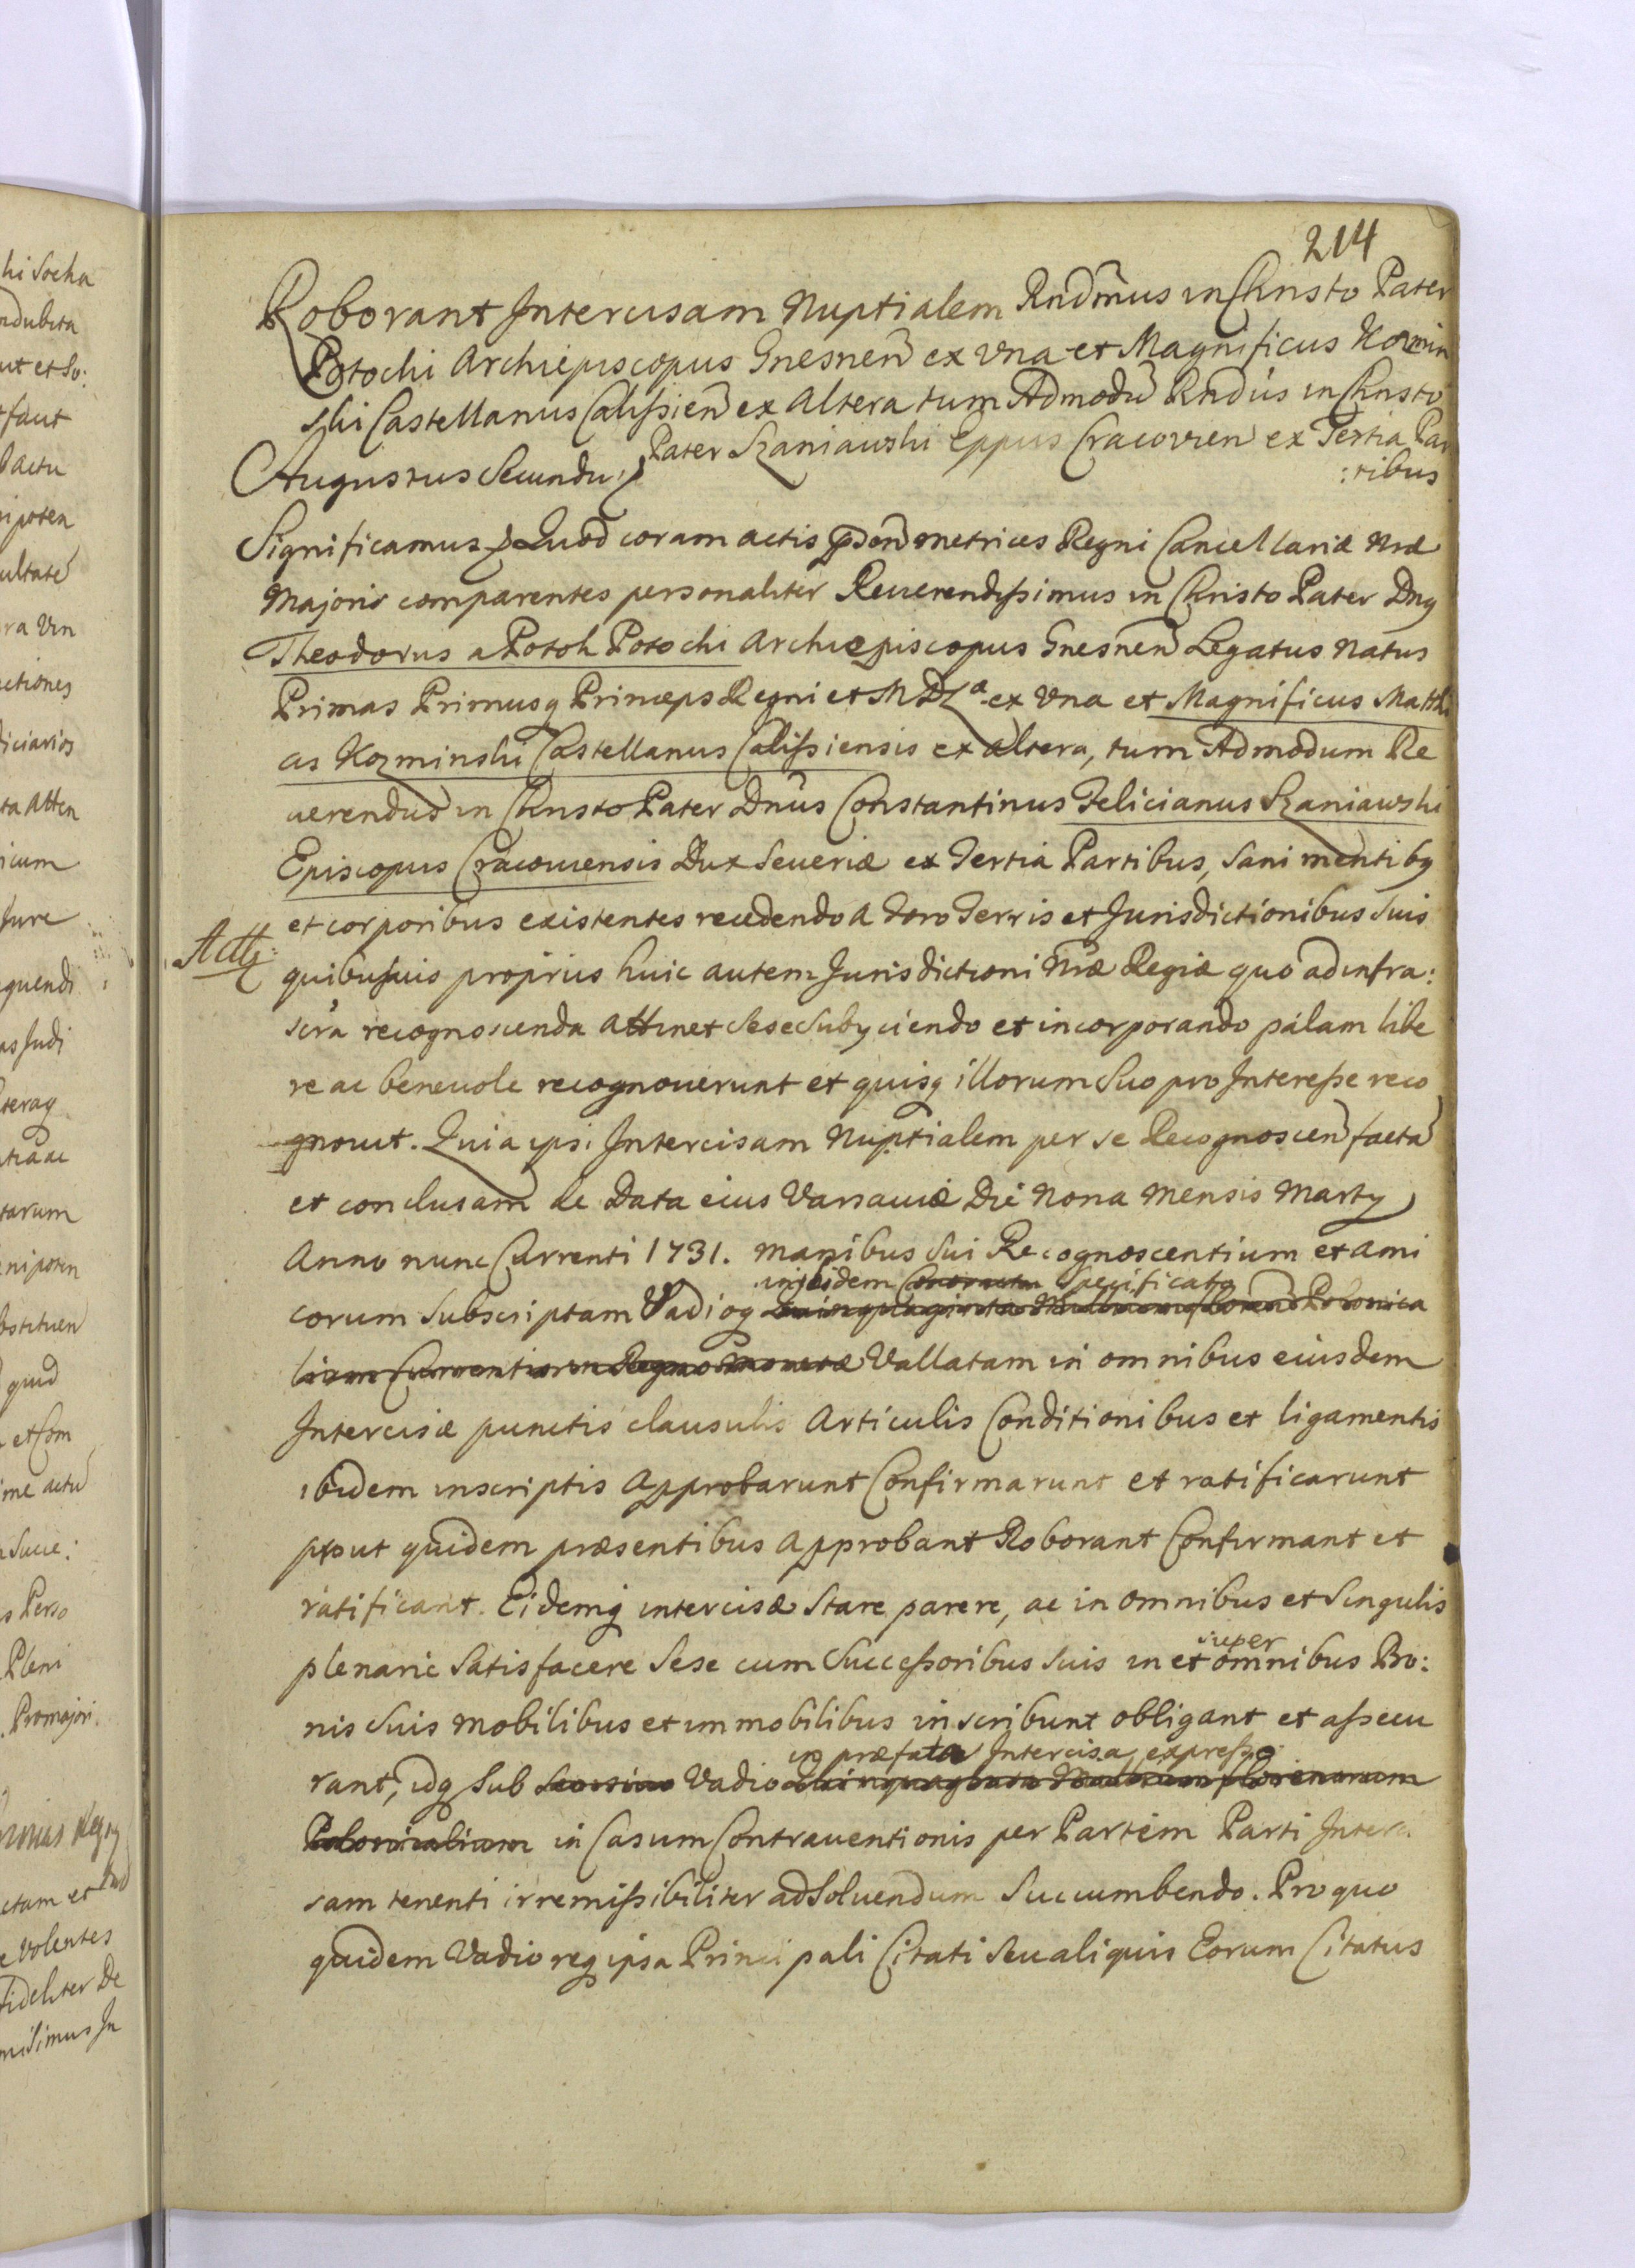 214
Roborant Intercisam Nuptialem Rndmus in Christo Pater
Potocki Archiepiscopus Gnesnen ex vna et Magnificus Kozmin
ski Castellanus Calissien ex Altera tum Admodu Rndus in Christo
Pater Szaniawski Eppus Cracovien ex Tertia Par
:tibus
Augustus Secundus
Significamus Quod coram actis metrices Regni Cancellariæ Nræ
Majoris comparentes personaliter Reuerendissimus in Christo Pater Dnus
Theodorus a Potok Potocki Archiepiscopus Gnesnen Legatus Natus
Primas Primusq Princeps Regni et M D L a ex Vna et Magnificus Matthi
as Kozminski Castellanus Calissiensis ex altera, tum Admodum Re
uerendus in Christo Pater Dnus Constantinus Felicianus Szaniawski
Episcopus Cracouiensis Dux Seueriæ ex Tertia Partibus, Sani mentibq
et corporibus existentes recedendo a Foro Terris et Jurisdictionibus Suis
quibusuis proprius huic autem Jurisdictioni Nræ Regiæ quo ad infra:
scra recognoscenda attinet Sese Subijciendo et incorporando palam libe
re ac beneuole recognouerunt et quisq illorum Suo pro Interesse reco
gnouit. Quia ipsi Intercisam Nuptialem per se Recognoscen facta
et conclusam de Data eius Varsauiæ Die Nona Mensis Martij
Anno nunc Currenti 1731. manibus Sui Recognoscentium et ami
in eidem Specificato
corum Subscriptam Vadioq Quinquaginta Millium floren Polonica
lium Currentium Regno Monetæ Vallatam in omnibus eiusdem
Intercisæ punctis clausulis Articulis Conditionibus et ligamentis
ibidem inscriptis Approbarunt Confirmarunt et ratificarunt
prout quidem præsentibus Approbant Roborant Confirmant et
ratificant. Eidemq intercisæ Stare parere, ac in omnibus et Singulis
super
plenarie Satisfacere Sese cum Successoribus Suis in et omnibus Bo:
nis Suis mobilibus et immobilibus inscribunt obligant et assecu
in præfata Intercisa expresso
rant, idq Sub Vadio Quinquaginta Millium florenorum
Polonicalium in Casum Contrauentionis per Partem Parti Interci
sam tenenti irremissibiliter adsoluendum Succumbendo. Pro quo
quidem Vadio req ipsa Principali Citati Seu aliquis Eorum Citatus